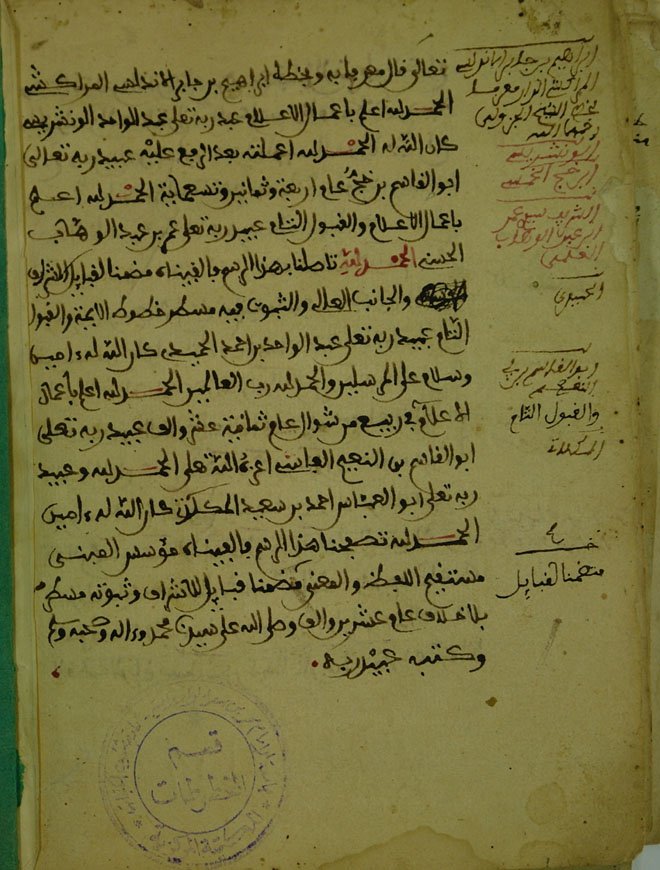 تعالى قال مهر ما به وبخطه ابراهيم بن جابر الاندلسي المراكشي
الحمد لله اعلم باعمال الاعلام عبد ربه تعلى عبد الواحد الونشريسي
كان الله له الحمد لله اعملته بعد الرفع عليه عبيد ربه تعالى
ابو القاسم بن خجو عام اربعة وثمانين وتسعماية الحمد لله اعلم
باعمال الاعلام والقبول التام عبيد ربه تعلى عمر بن عبد الوهاب
الحسني الحمد لله تاملنا هذا الرسم فالفيناه مضمنا لقبايل الاشراف
والجانب العالي والثبوت فيه مسطر خطوط الايمة والقبول
التام عبيد ربه تعلى عبد الواحد بن احمد الحميدي كان الله له ءامين
وسلام على المرسلين والحمد لله رب العالمين الحمد لله اعلم باعمال
الاعلام في ربيع من شوال عام ثمانية عشر والف عبيد ربه تعلى
ابو القاسم بن النعيم الغساني اعزه الله تعلى الحمد لله وعبيد
ربه تعلى ابو العباس احمد بن سعيد المكلاتي كان الله له ءامين
الحمد لله تصفحنا هذا الرسم فالفيناه مؤسس المبنى
مستقيم اللفظ والمعنى مضمنا قبايل للاشراف وثبوته مسطر
بلا خلاف عام عشرين والف وصلى الله على سيدنا محمد وءاله وصحبه وسلم
وكتب عبيد ربه
ابراهيم بن جابر الاندلسي
رحمهما الله
الونشريسي
ابن خجو
الشريف سيدي عمر
ابن عبد الوهاب
العلمي
الحميدي
ابو القاسم بن ابي
النعيم
والقبول التام
المكلاتي
خ
متضمنا لقبايل
قسم
المخطوطات